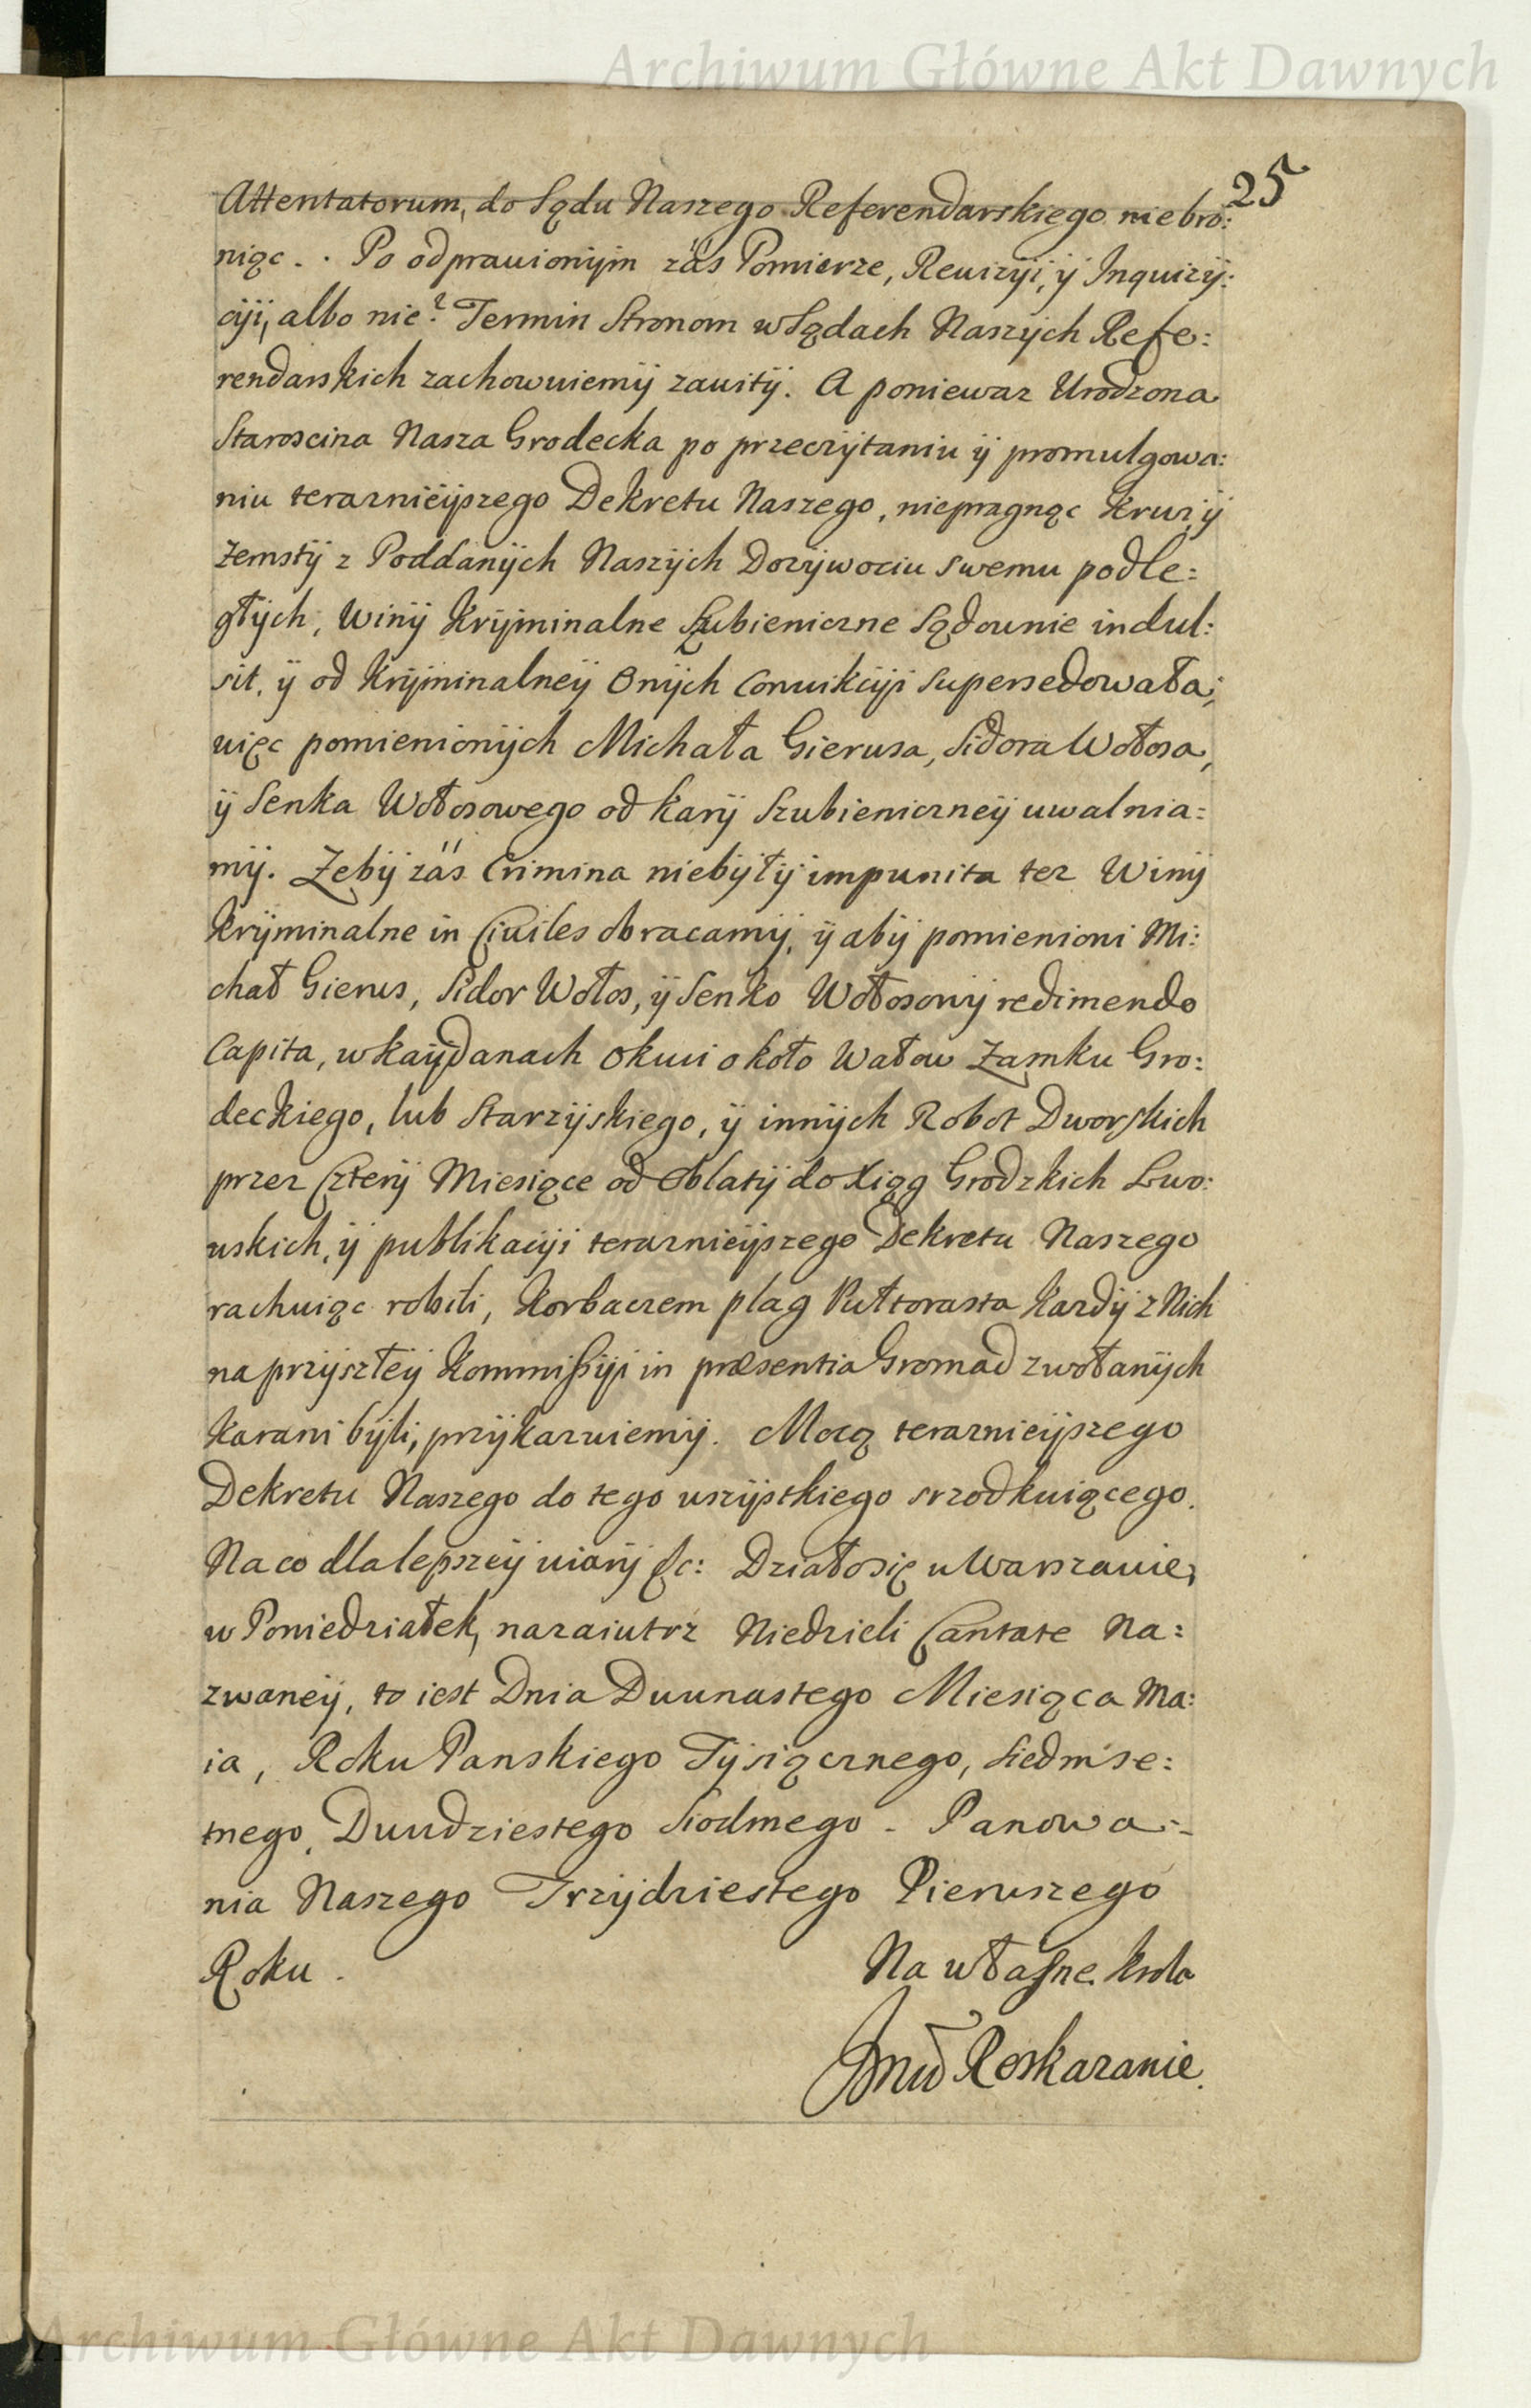 Archiwum Główne Akt Dawnych
25
Attentatorum, do Sądu Naszego Referendarskiego niebro:
niąc. . Po odprawionÿm zaś Pomierze, Rewizÿi, ÿ Inquizÿ:
cÿi, albo nie? Termin Stronom w Sądach Naszÿch Refe:
rendarskich zachowuiemÿ zawitÿ. A poniewaz Urodzona
Staroscina Nasza Grodecka po przeczÿtaniu ÿ promulgowa:
niu terazniēÿszego Dekretu Naszego, niepragnąc krwi, ÿ
zemstÿ z Poddanÿch Naszÿch Dozÿwociu swemu podle:
głÿch, Winÿ Krÿminalne Szubieniczne Sądownie indul:
sit, ÿ od Krÿminalneÿ Onÿch Conwikcÿi supersedowała;
więc pomienionÿch Michała Gierusa, Sidora Wołosa,
ÿ Senka Wołosowego od karÿ Szubieniczneÿ uwalnia:
mÿ. Zebÿ zaś Crimina niebÿłÿ impunita tez Winÿ
Krÿminalne in Civiles obracamÿ, ÿ abÿ pomienioni Mi:
chał Gierus, Sidor Wołos, ÿ Senko Wołosowÿ redimendo
Capita, w kaÿdanach okuci około Wałow Zamku Gro:
deckiego, lub Starzÿskiego, ÿ innÿch Robot Dworskich
przez Czterÿ Miesiące od Oblatÿ do Xiąg Grodzkich Lwo:
wskich, ÿ publikacÿi teraznieÿszego Dekretu Naszego
rachuiąc robili, Korbaczem plag Puttorasta kazdÿ z Nich
na przÿszłeÿ Kommissÿi in præsentia Gromad zwołanÿch
karani bÿli, przÿkazuiemÿ. Mocą teraznieÿszego
Dekretu Naszego do tego wszÿstkiego srzodkuiącego.
Na co dla lepszeÿ wiarÿ &c: Działo się w Warszawie,
w Poniedziałek, nazaiutrz Niedzieli Cantate Na:
zwaneÿ, to iest Dnia Dwunastego Miesiąca Ma:
ia, Roku Panskiego Tÿsiącznego, Siedmse:
tnego, Dwudziestego Siodmego - Panowa:-
nia Naszego Trzÿdziestego Pierwszego
Roku. Na własne Krola
Jmci Roskazanie.
Archiwum Główne Akt Dawnych